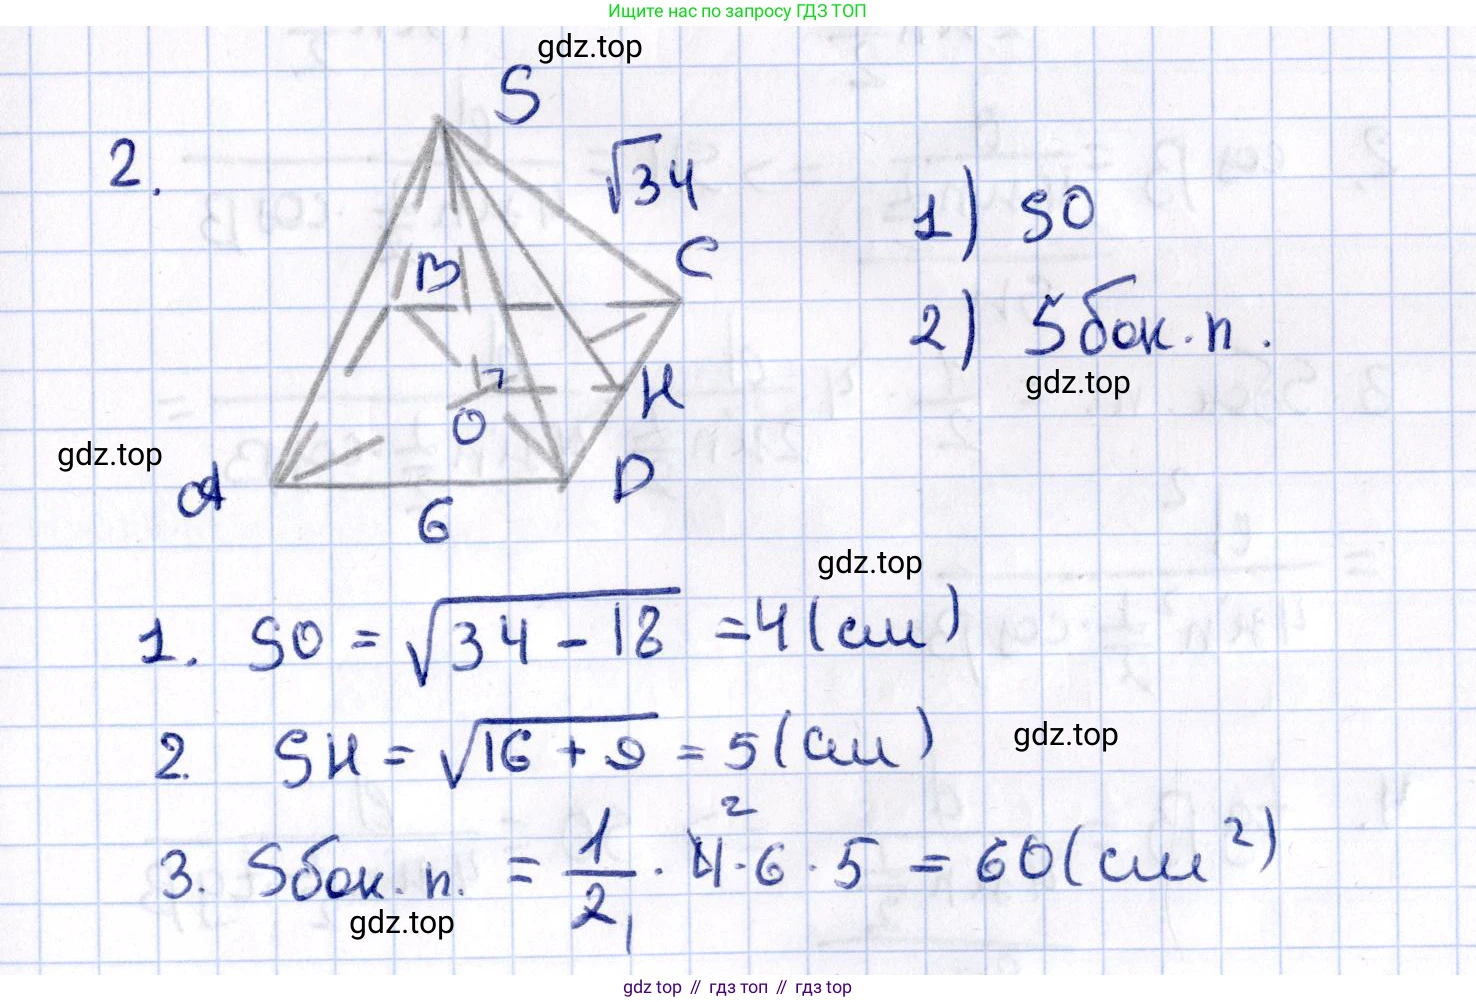 Ищите нас по запросу ГДЗ ТОП
gdz.top
S
2.
√34
1) SO
B
C
2) Sбок.п.
gdz.top
H
O
gdz.top
A
D
6
gdz.top
1. SO = √34 - 18 = 4 (см)
2. SH = √16 + 9 = 5 (см)
gdz.top
3. Sбок.п. = 1/2 · 4 · 6 · 5 = 60 (см²)
2
1
gdz.top
gdz top // гдз топ // гдз top